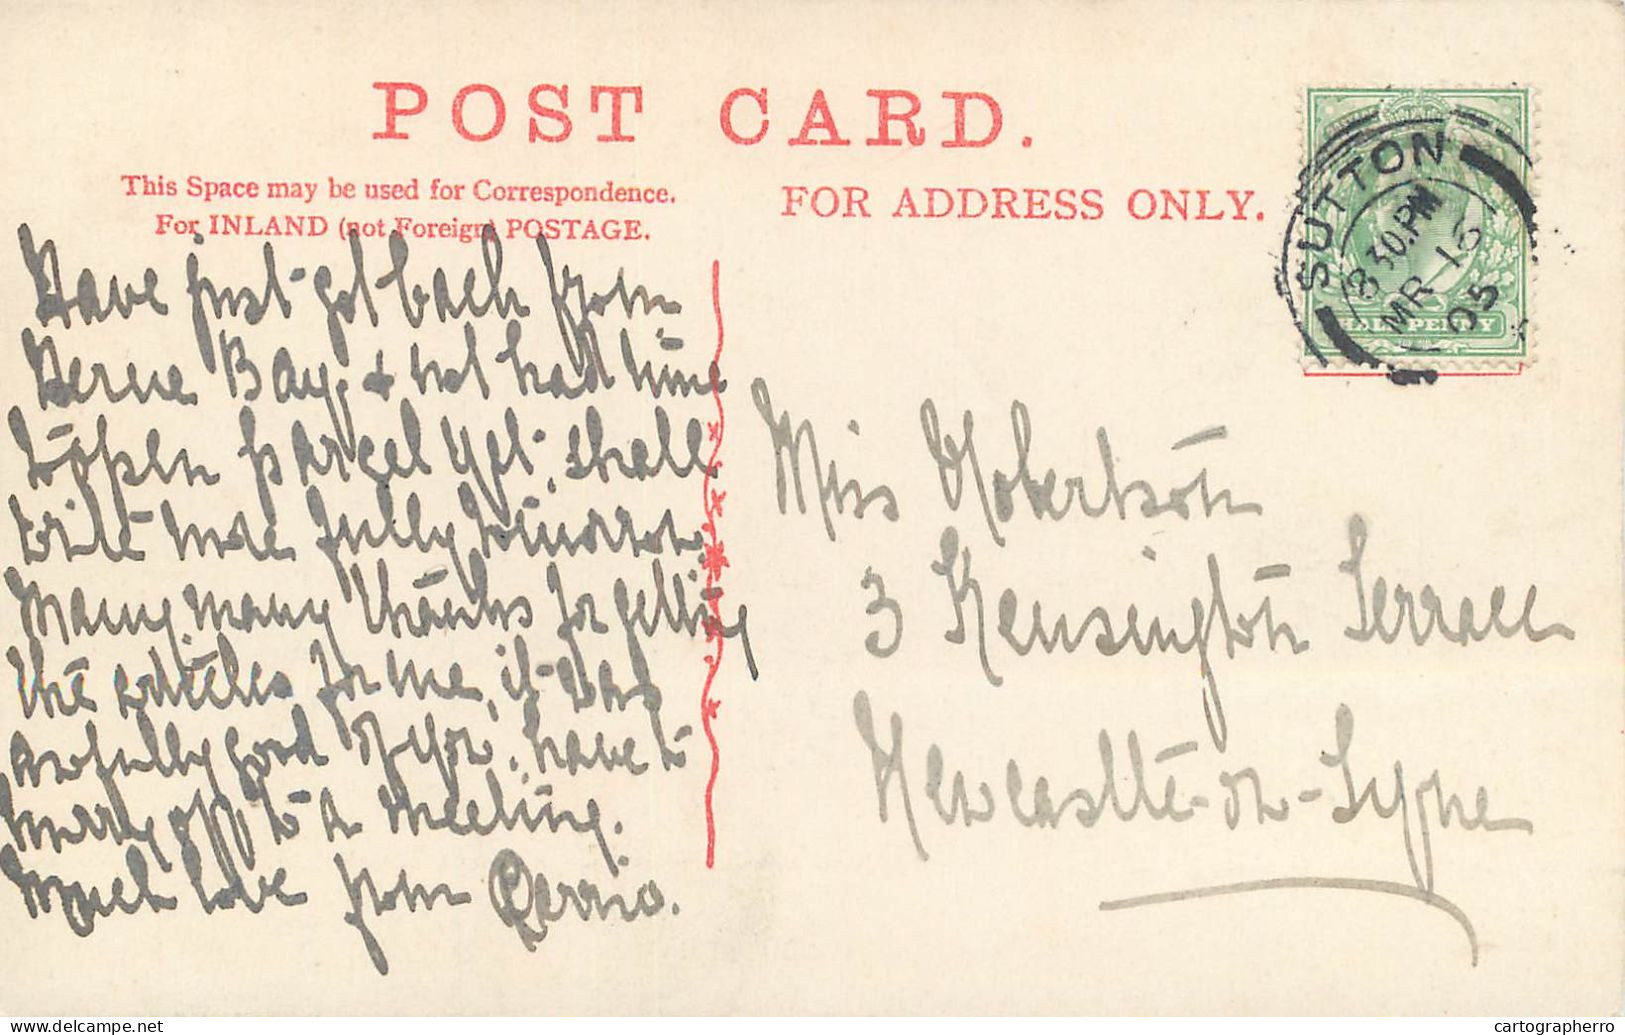 POST CARD.
This Space may be used for Correspondence.
For INLAND (not Foreign) POSTAGE.
FOR ADDRESS ONLY.
SUTTON
8 30.PM
MR 16
05
HALF PENNY
Have just got back from
Herne Bay, & not had time
to open parcel yet, shall
write more fully tomorrow.
Many, many thanks for getting
the articles for me, it was
awfully good of you, have to
hurry off to a meeting.
Much love from
Miss Robertson
3 Kensington Terrace
Newcastle-on-Tyne
delcampe.net
cartographerro